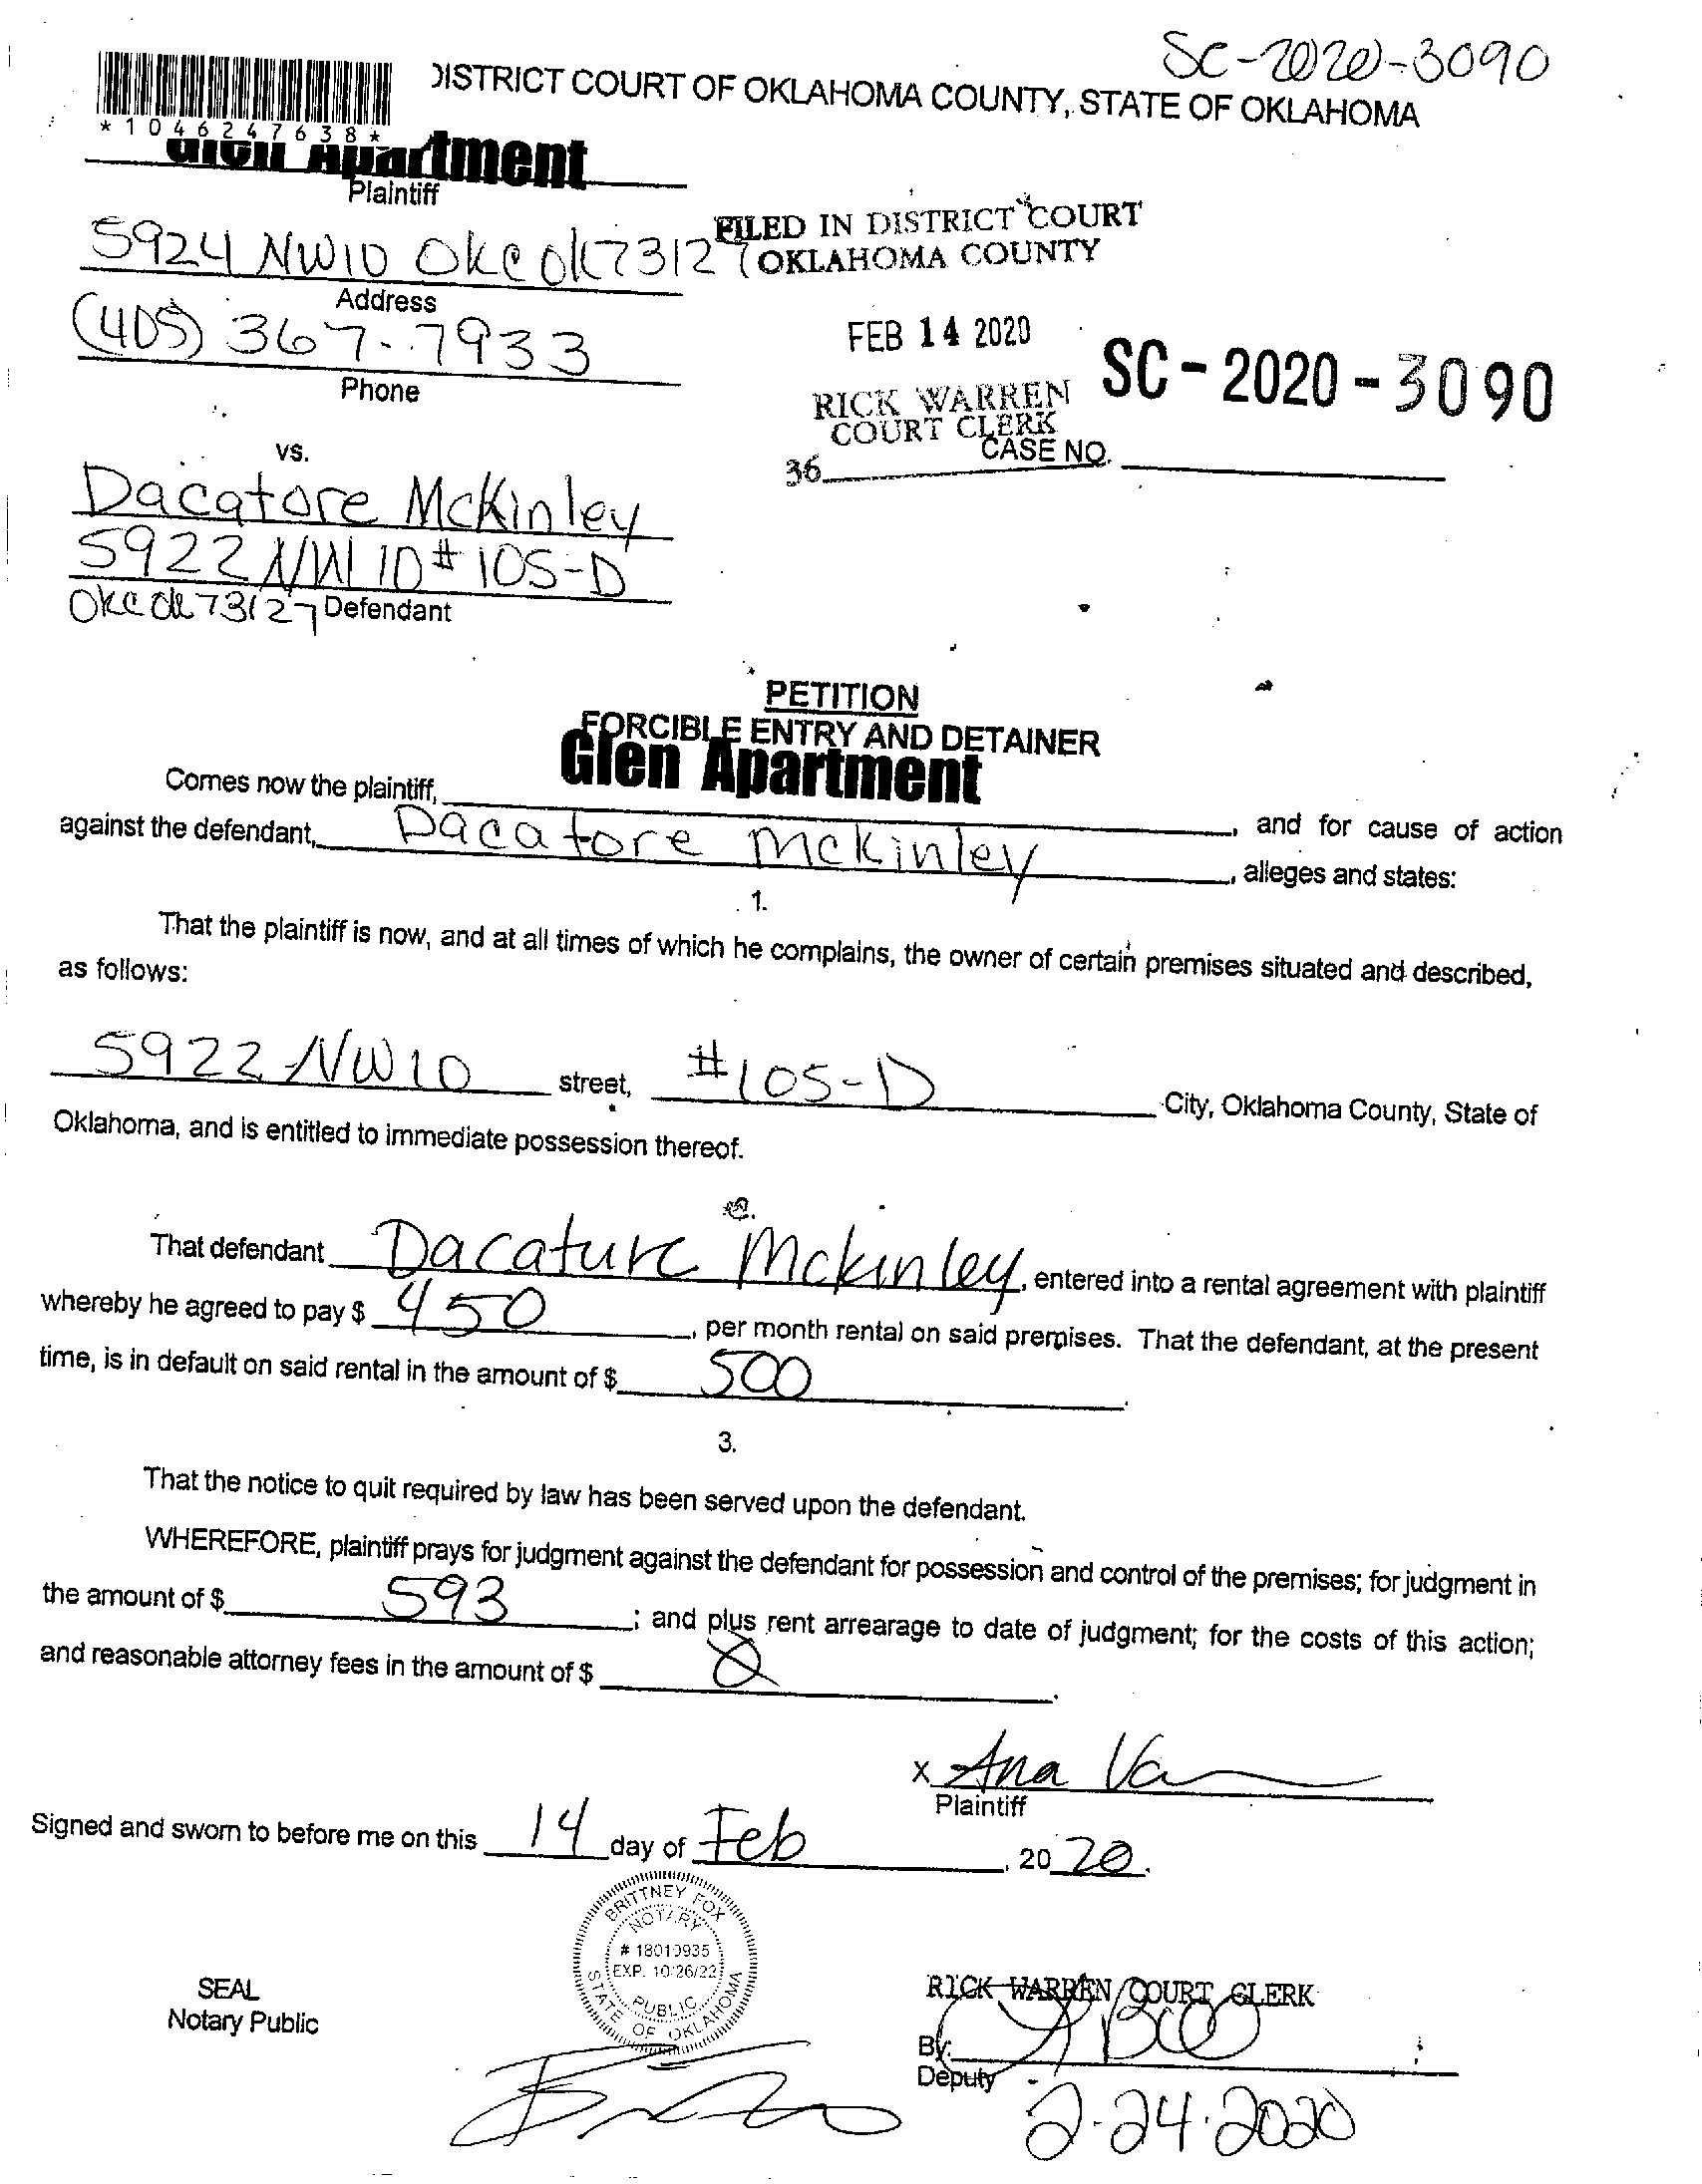 SC-2020-3090
DISTRICT COURT OF OKLAHOMA COUNTY, STATE OF OKLAHOMA
*1046247638*
Glen Apartment
Plaintiff
5924 NW10 OKC OK 73127
FILED IN DISTRICT COURT
OKLAHOMA COUNTY
Address
(405) 367-7933
Phone
FEB 14 2020
SC-2020-3090
RICK WARREN
COURT CLERK
CASE NO.
36
vs.
Dacatore McKinley
5922 NW 10 # 105-D
OKC OK 73127 Defendant
PETITION
FORCIBLE ENTRY AND DETAINER
Comes now the plaintiff, Glen Apartment
against the defendant, Dacatore McKinley, and for cause of action
, alleges and states:
1.
That the plaintiff is now, and at all times of which he complains, the owner of certain premises situated and described,
as follows:
5922 NW 10 street, #105-D City, Oklahoma County, State of
Oklahoma, and is entitled to immediate possession thereof.
That defendant Dacature Mckinley, entered into a rental agreement with plaintiff
whereby he agreed to pay $ 450, per month rental on said premises. That the defendant, at the present
time, is in default on said rental in the amount of $ 500.
3.
That the notice to quit required by law has been served upon the defendant.
WHEREFORE, plaintiff prays for judgment against the defendant for possession and control of the premises; for judgment in
the amount of $ 593; and plus rent arrearage to date of judgment; for the costs of this action;
and reasonable attorney fees in the amount of $
x Ana
Plaintiff
Signed and sworn to before me on this 14 day of Feb, 2020.
BRITTNEY FOX
NOTARY
# 18010935
EXP. 10/26/22
PUBLIC
STATE OF OKLAHOMA
SEAL
Notary Public
RICK WARREN COURT CLERK
By:
Deputy
2-24-2020